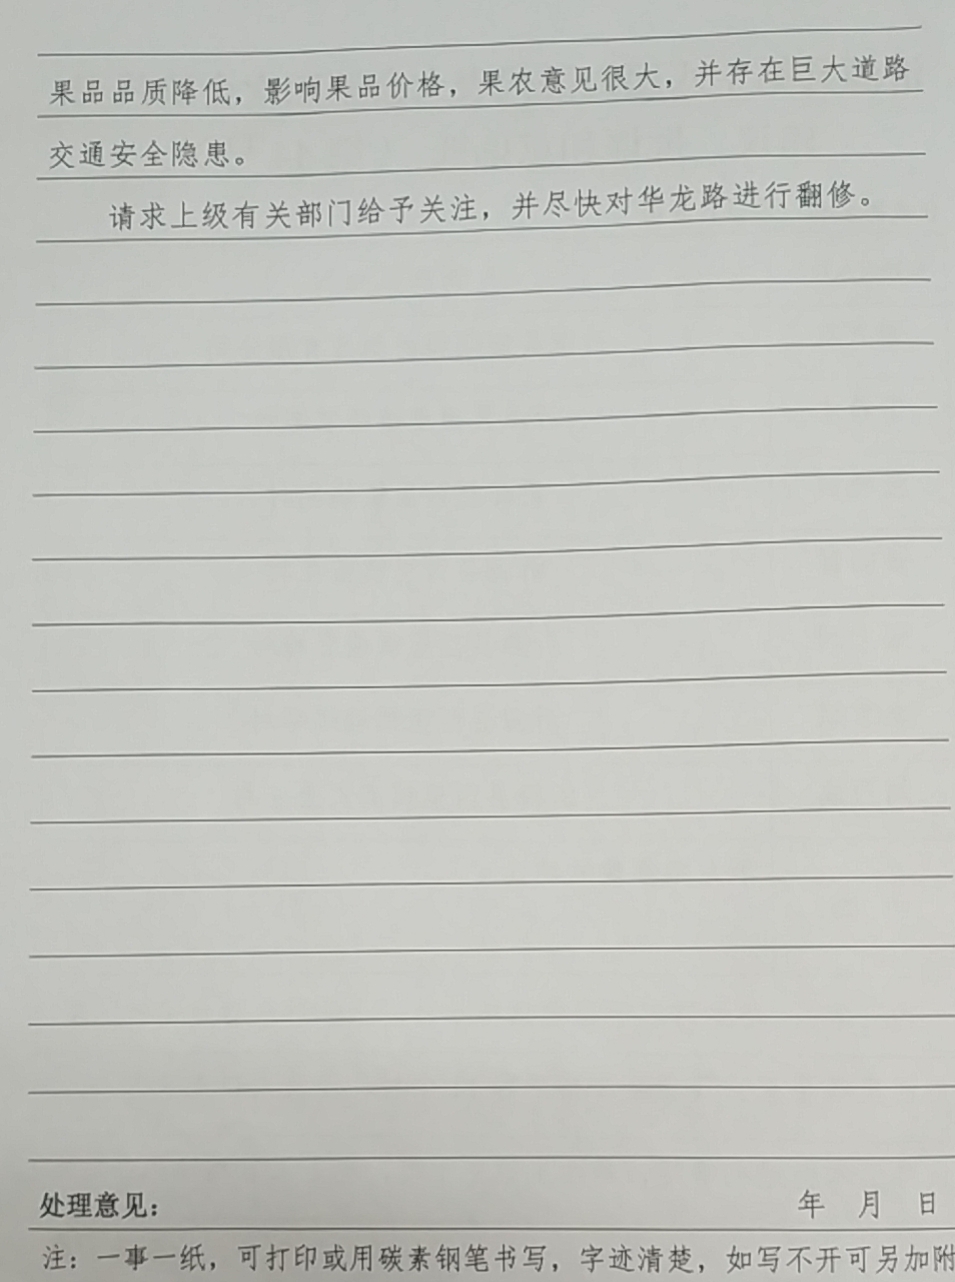 果品品质降低，影响果品价格，果农意见很大，并存在巨大道路
交通安全隐患。
请求上级有关部门给予关注，并尽快对华龙路进行翻修。
处理意见： 年 月 日
注：一事一纸，可打印或用碳素钢笔书写，字迹清楚，如写不开可另加附